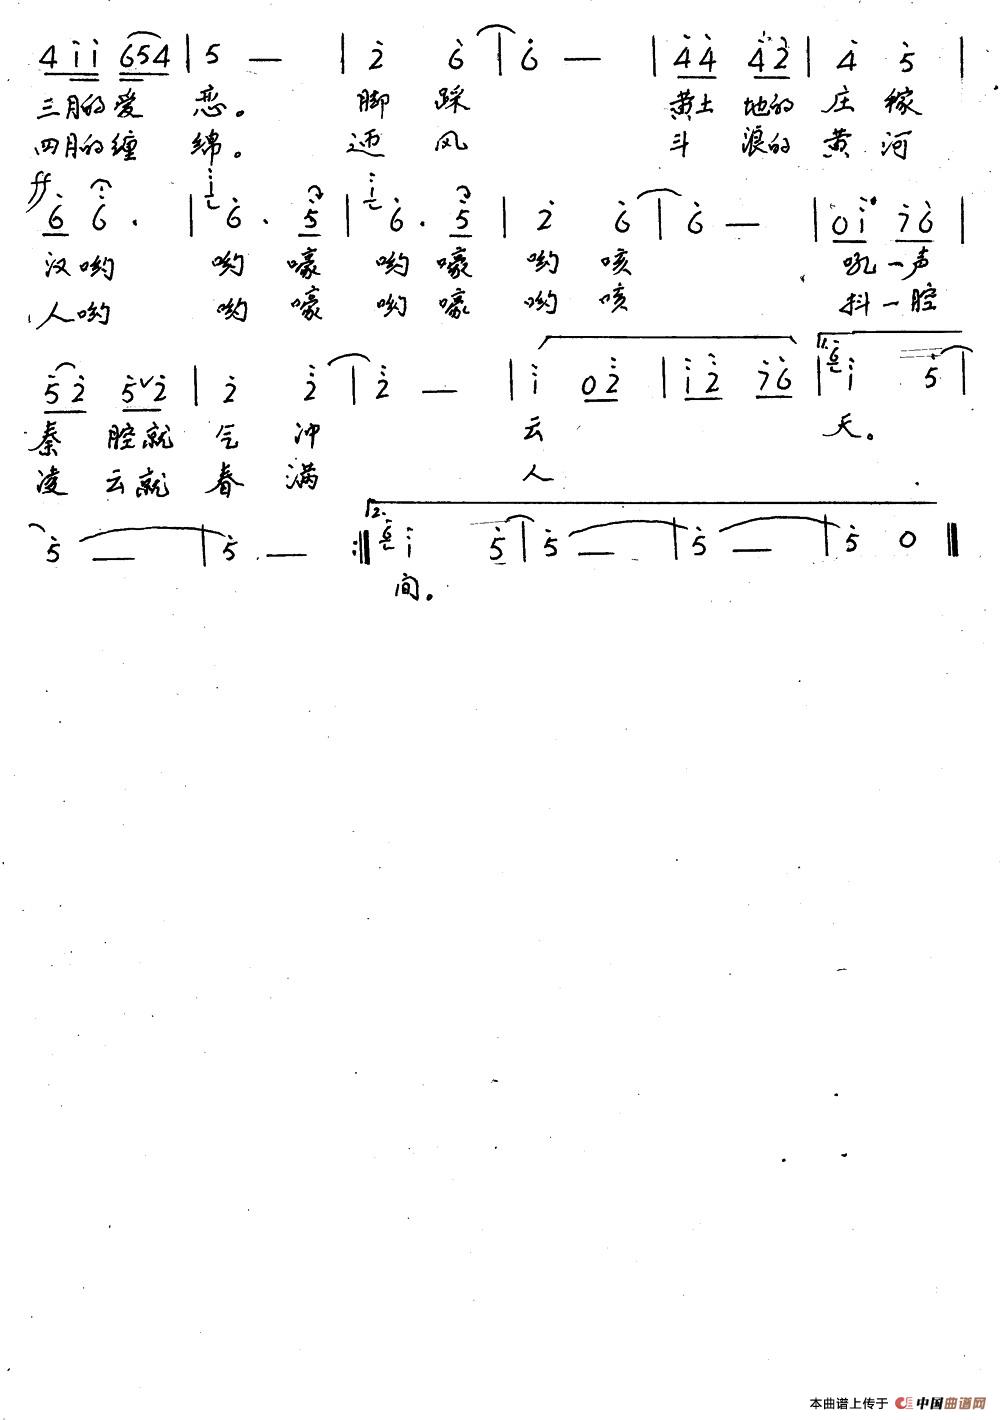 4 i i 6 5 4 | 5 — | 2 6 | 6 — | 4 4 4 2 | 4 5 |
三月的爱 恋。 脚 踩 黄土 地的 庄 稼
四月的缠 绵。 迎 风 斗 浪的 黄 河
ff
6 6 . | i 6 . 5 | i 6 . 5 | 2 6 | 6 — | 0 i 7 6 |
汉哟 哟 嚎 哟 嚎 哟 咳 吼一声
人哟 哟 嚎 哟 嚎 哟 咳 抖一腔
5 2 5 ∨ 2 | 2 2 | 2 — | i 0 2 | i 2 7 6 | 1. 6 i 5 |
秦 腔就 气 冲 云 天。
凌 云就 春 满 人
5 — | 5 — :| 2. 6 i 5 | 5 — | 5 — | 5 0 ‖
间。
本曲谱上传于 中国曲谱网